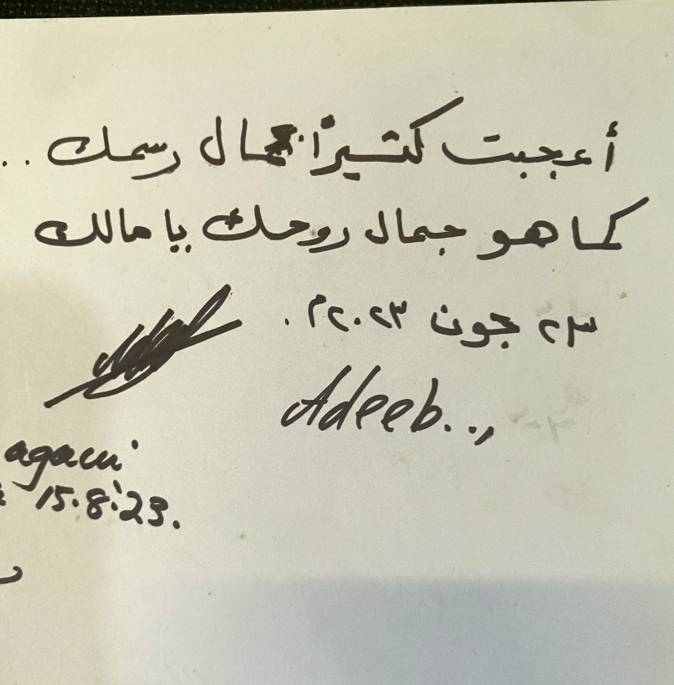 أعجبت كثيرًا بجمال رسمك ..
كما هو جمال روحك يا مالك
٢٣ جون ٢٠٢٣م .
Adeeb..,
agacui
15.8.'23.